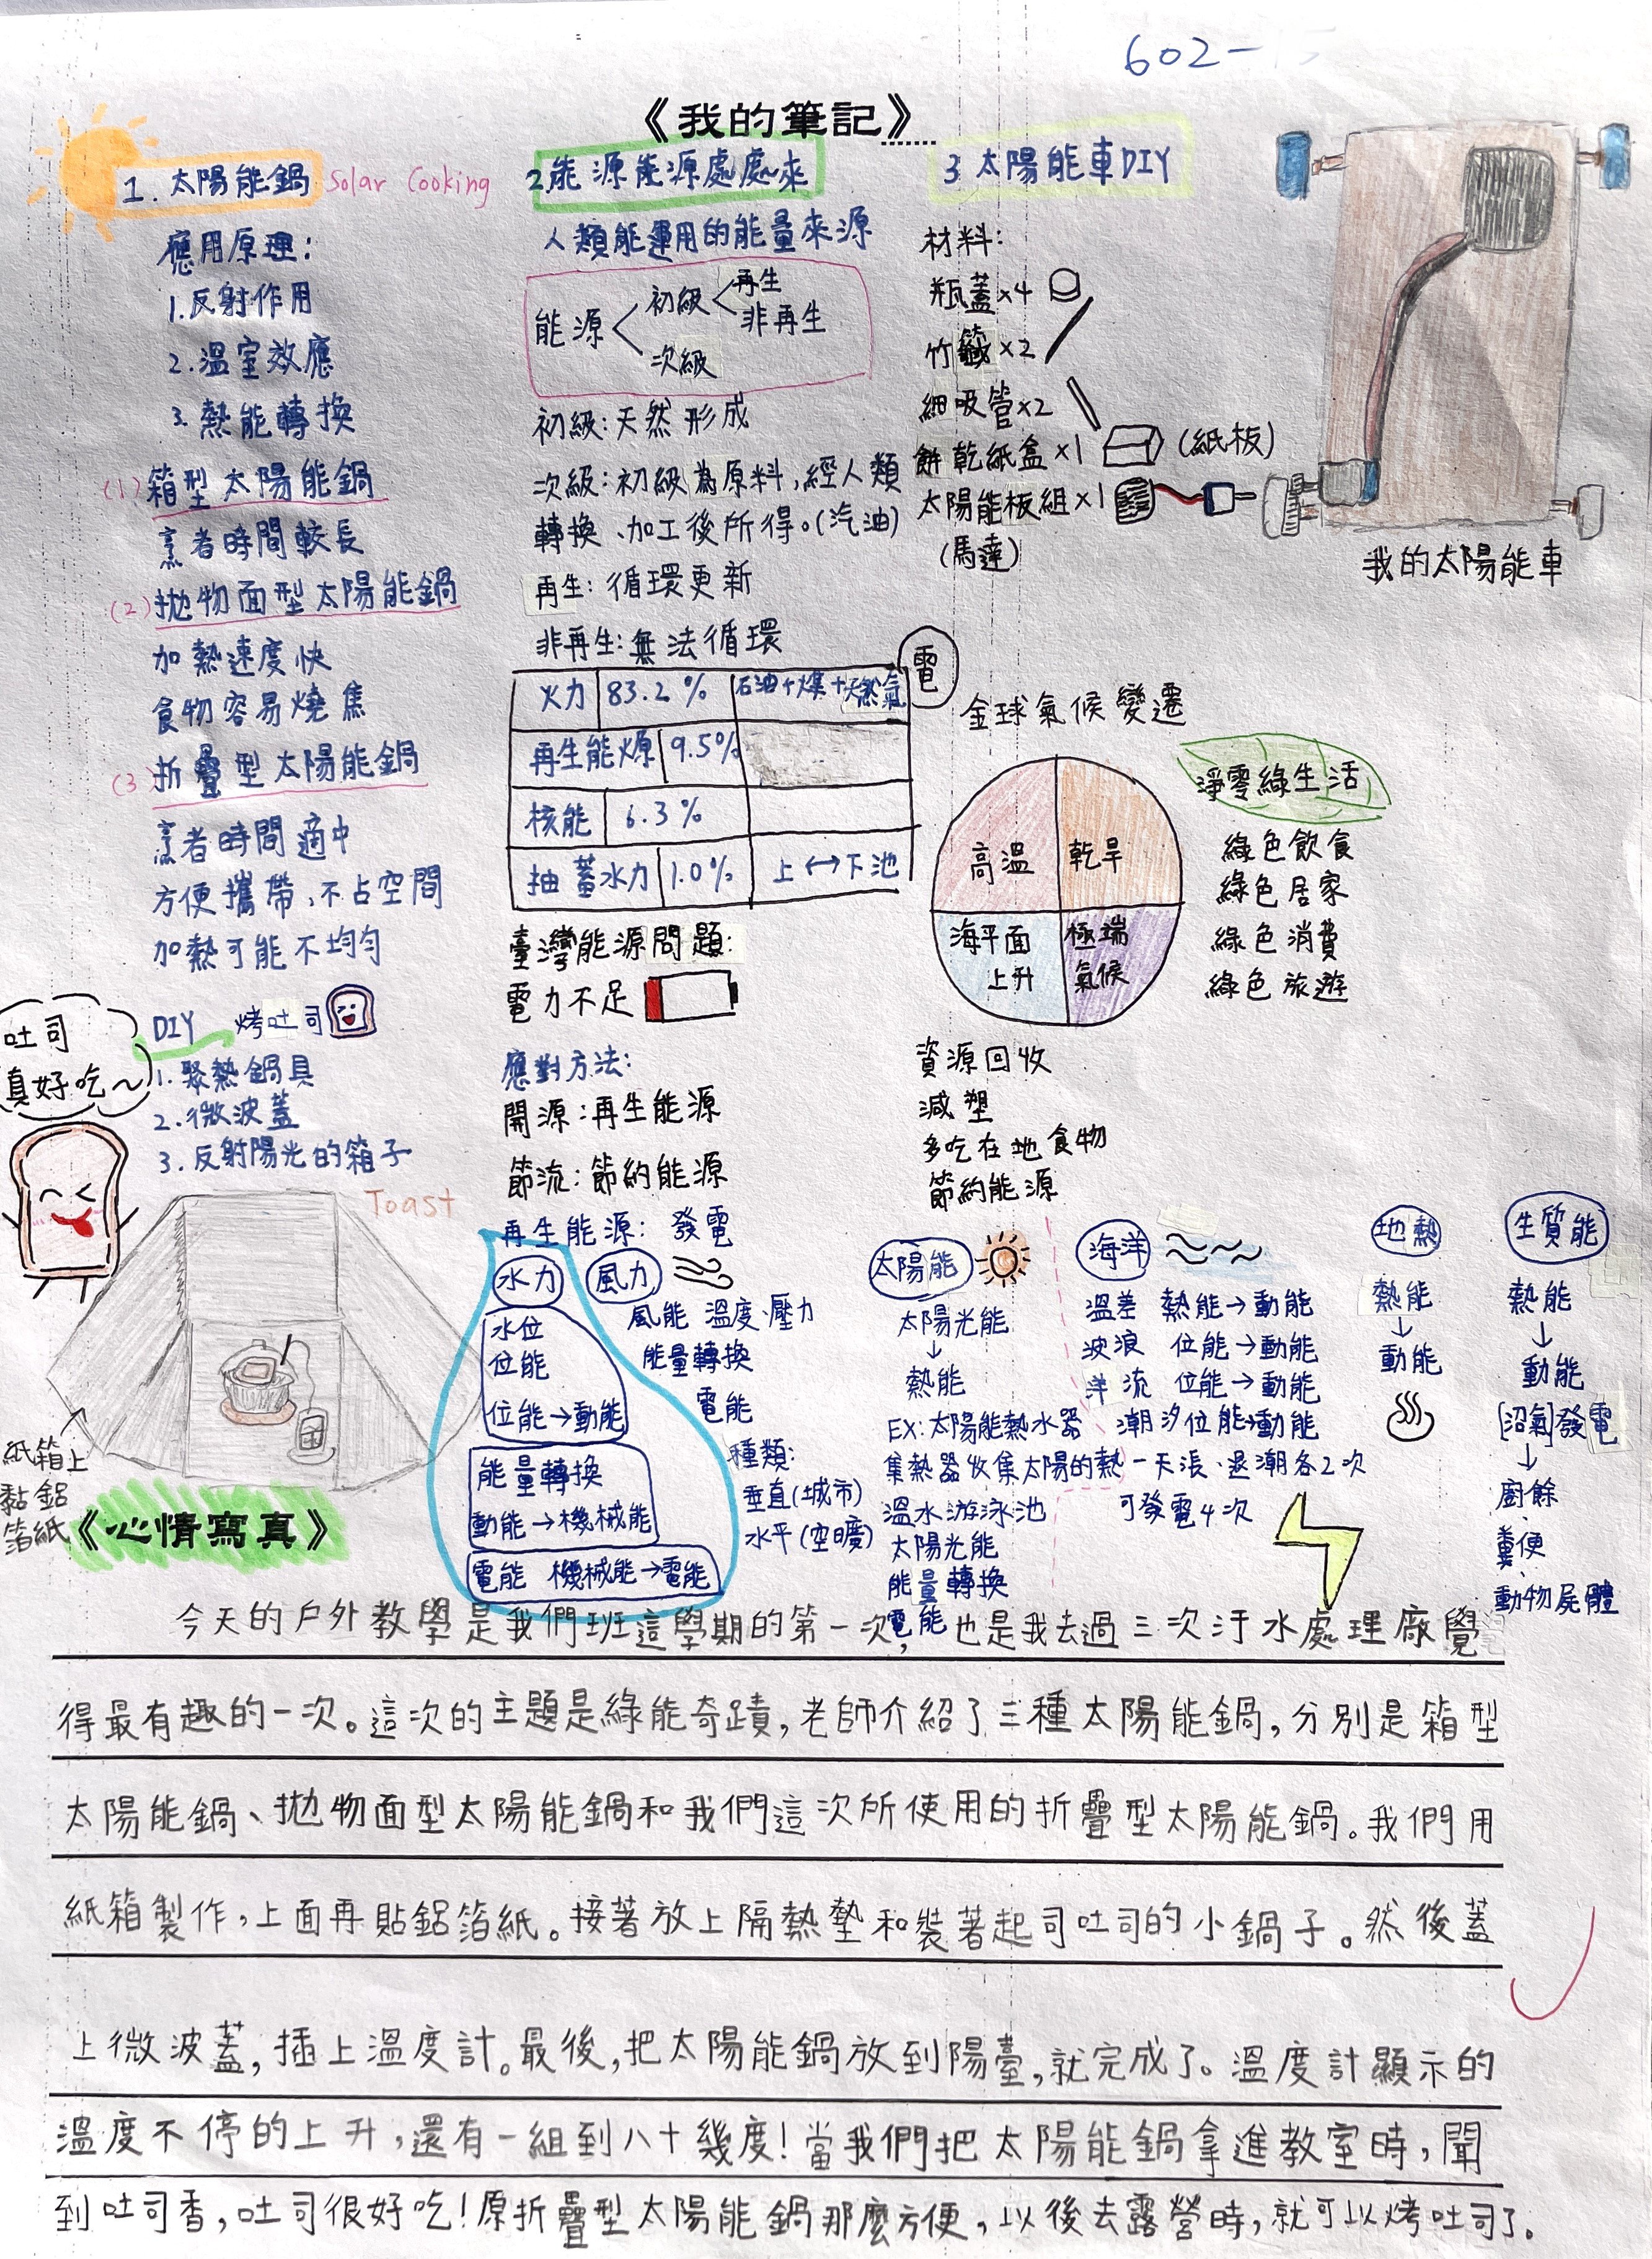 602-
《我的筆記》
1. 太陽能鍋 Solar Cooking
應用原理:
1.反射作用
2.溫室效應
3.熱能轉換
(1)箱型太陽能鍋
烹者時間較長
(2)拋物面型太陽能鍋
加熱速度快
食物容易燒焦
(3)折疊型太陽能鍋
烹者時間適中
方便攜帶,不占空間
加熱可能不均勻
DIY 烤吐司
1.聚熱鍋具
2.微波蓋
3.反射陽光的箱子
吐司
真好吃~
Toast
紙箱上
黏鋁
箔紙
2能源能源處處來
人類能運用的能量來源
能源
初級
再生
非再生
次級
初級:天然形成
次級:初級為原料,經人類
轉換、加工後所得。(汽油)
再生:循環更新
非再生:無法循環
電
火力 83.2% 石油+煤+天然氣
再生能源 9.5%
核能 6.3%
抽蓄水力 1.0% 上↔下池
臺灣能源問題:
電力不足
應對方法:
開源:再生能源
節流:節約能源
再生能源:發電
水力
水位
位能
位能→動能
能量轉換
動能→機械能
電能 機械能→電能
風力
風能 溫度、壓力
能量轉換
電能
種類:
垂直(城市)
水平(空曠)
3 太陽能車DIY
材料:
瓶蓋×4
竹籤×2
細吸管×2
餅乾紙盒×1 (紙板)
太陽能板組×1
(馬達)
我的太陽能車
全球氣候變遷
高溫
乾旱
海平面
上升
極端
氣候
淨零綠生活
綠色飲食
綠色居家
綠色消費
綠色旅遊
資源回收
減塑
多吃在地食物
節約能源
太陽能
太陽光能
↓
熱能
EX:太陽能熱水器
集熱器收集太陽的熱
溫水游泳池
太陽光能
能量轉換
電能
海洋
溫差 熱能→動能
波浪 位能→動能
洋流 位能→動能
潮汐位能→動能
一天漲、退潮各2次
可發電4次
地熱
熱能
↓
動能
生質能
熱能
↓
動能
[沼氣]發電
↓
廚餘
糞便
動物屍體
《心情寫真》
今天的戶外教學是我們班這學期的第一次,也是我去過三次汙水處理廠覺
得最有趣的一次。這次的主題是綠能奇蹟,老師介紹了三種太陽能鍋,分別是箱型
太陽能鍋、拋物面型太陽能鍋和我們這次所使用的折疊型太陽能鍋。我們用
紙箱製作,上面再貼鋁箔紙。接著放上隔熱墊和裝著起司吐司的小鍋子。然後蓋
上微波蓋,插上溫度計。最後,把太陽能鍋放到陽臺,就完成了。溫度計顯示的
溫度不停的上升,還有一組到八十幾度!當我們把太陽能鍋拿進教室時,聞
到吐司香,吐司很好吃!原折疊型太陽能鍋那麼方便,以後去露營時,就可以烤吐司了。